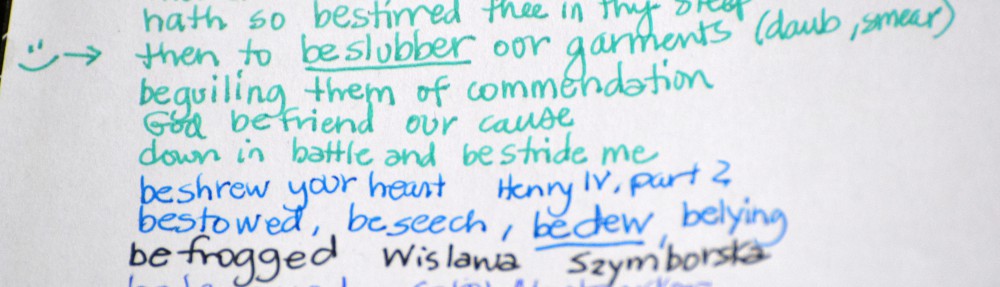 hath so bestirred thee in thy sleep
then to beslubber our garments (daub, smear)
beguiling them of commendation
God befriend our cause
down in battle and bestride me
beshrew your heart Henry IV, part 2
bestowed, beseech, bedew, belying
befrogged Wislawa Szymborska